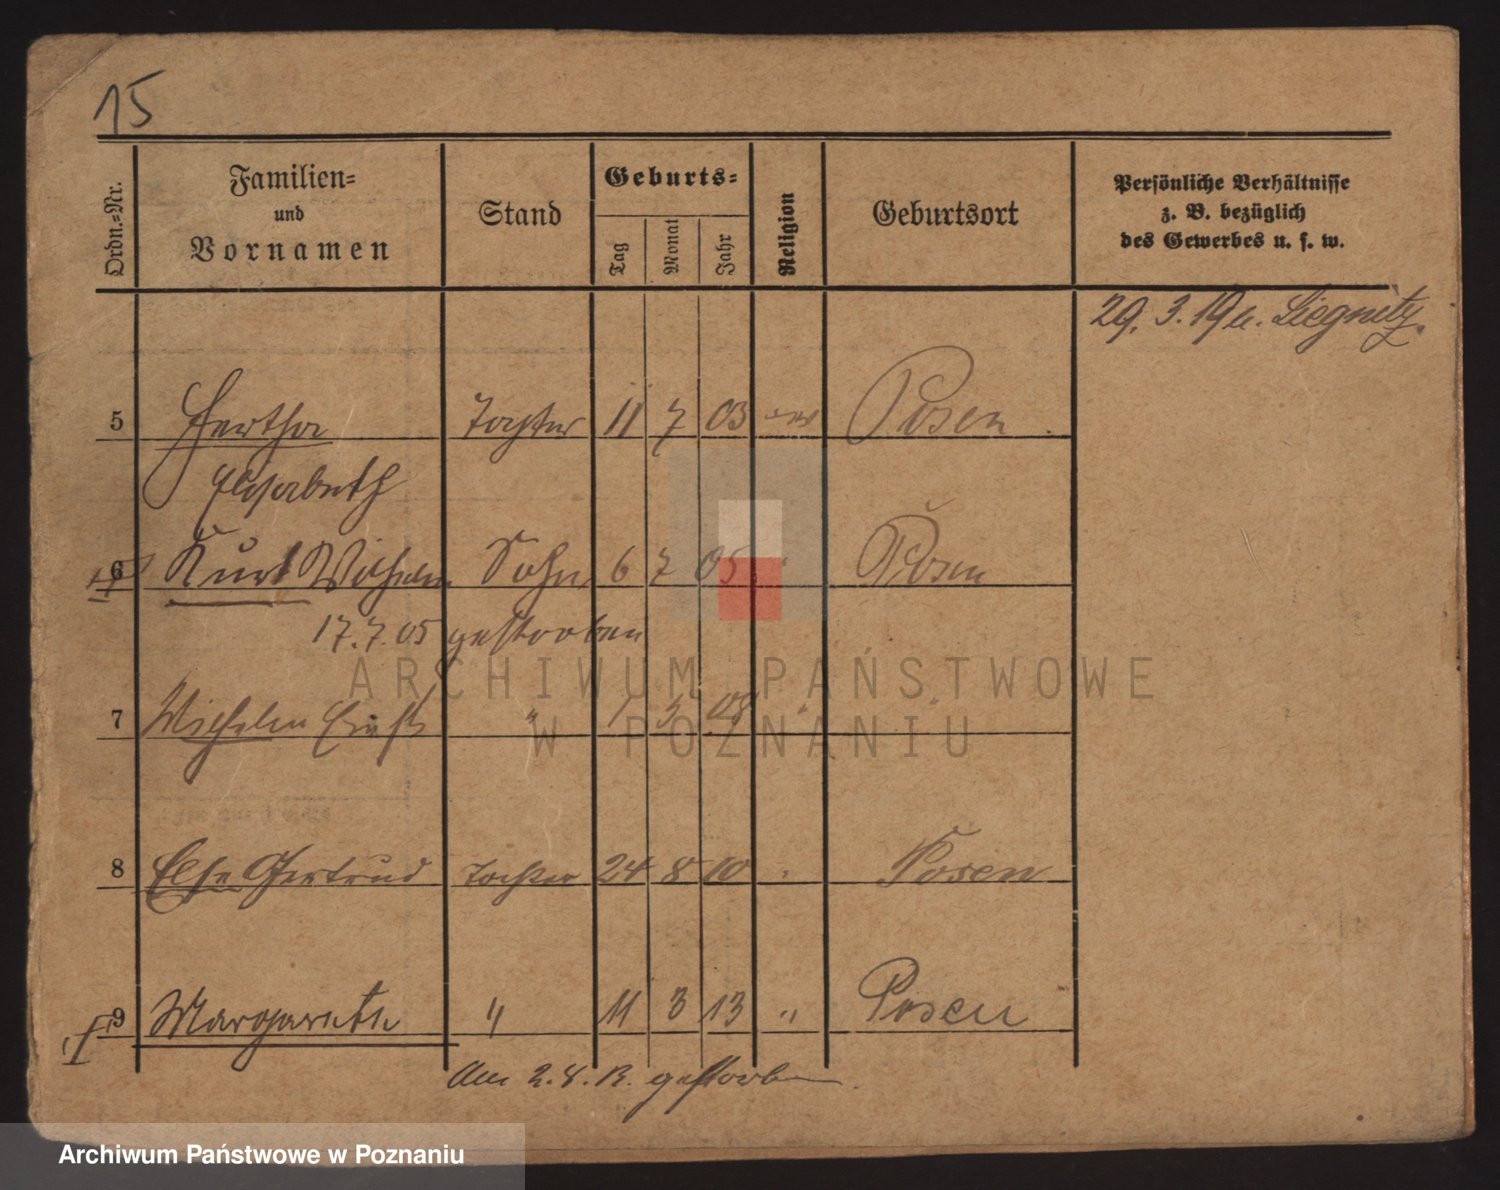 15
Ordn.-Nr.
Familien-
und
Vornamen
Stand
Geburts-
Tag
Monat
Jahr
Religion
Geburtsort
Persönliche Verhältnisse
z. B. bezüglich
des Gewerbes u. s. w.
29. 3. 19 n. Liegnitz.
5 Hertha Tochter 11 7 03 ev Posen
Elisabeth
6 Kurt Wilhelm Sohn 6 7 05 " Posen
17.7.05 gestorben
7 Wilhelm Ernst " 1 3 08 " "
8 Else Gertrud Tochter 24 8 10 " Posen
9 Margarete " 11 3 13 " Posen
Am 2.8.13. gestorben.
ARCHIWUM PAŃSTWOWE
W POZNANIU
Archiwum Państwowe w Poznaniu